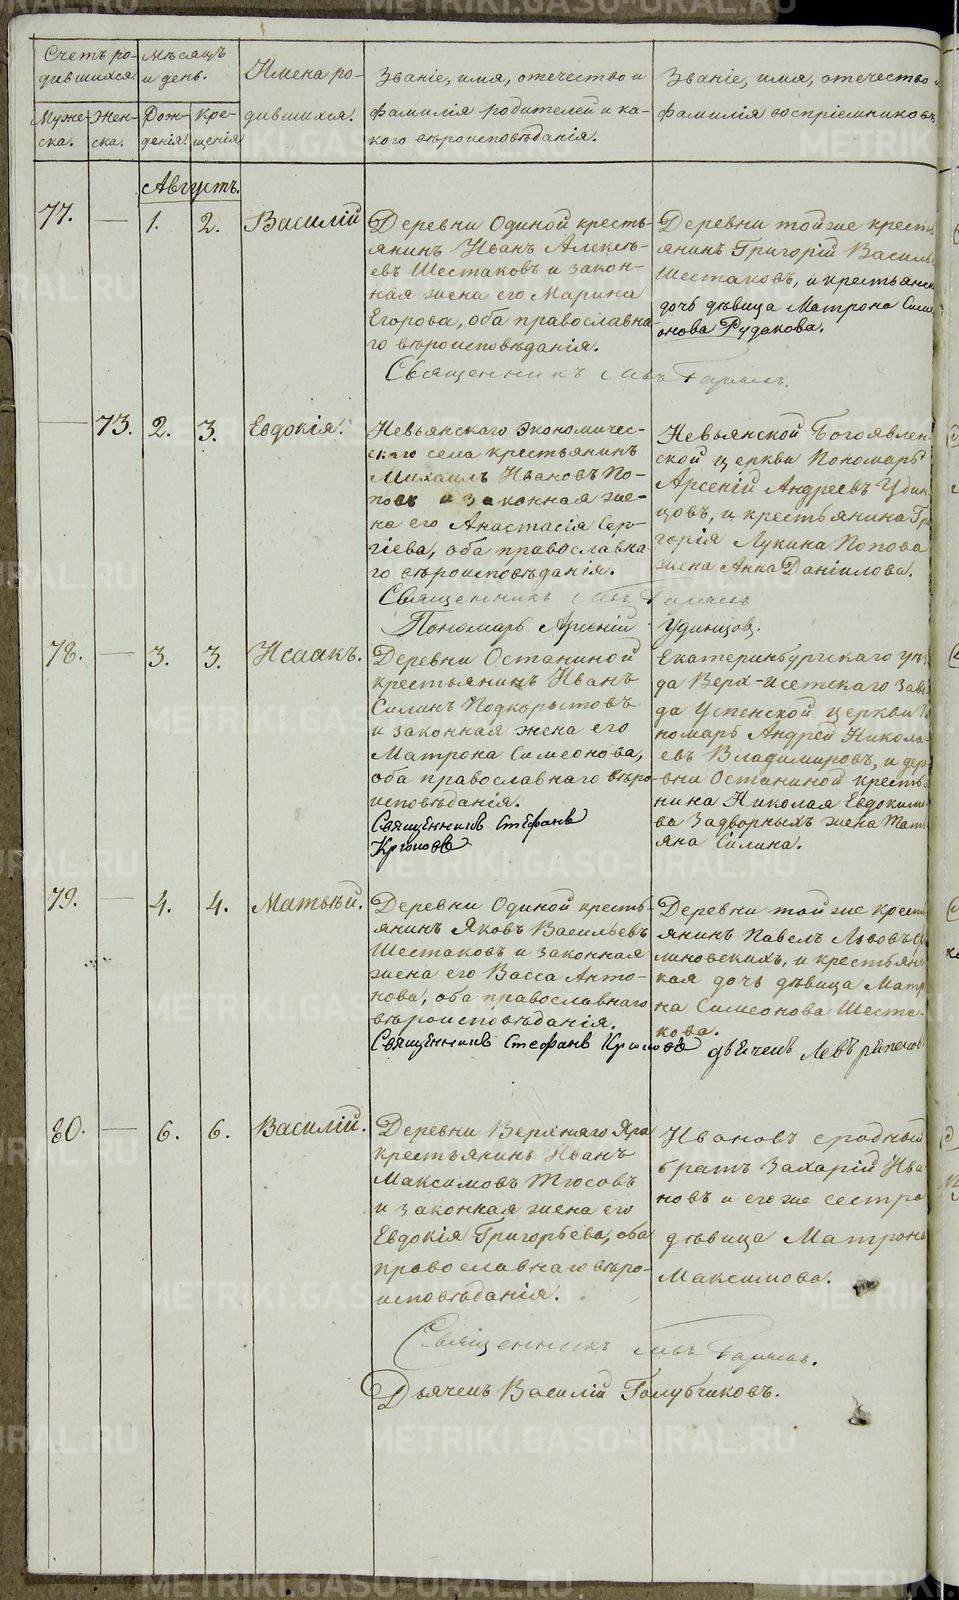 Счетъ ро-
дившихся
Муже-
ска.
Жен-
ска.
Мѣсяцъ
и день.
Рож-
денія.
Кре-
щенія
Имена ро-
дившихся.
Званіе, имя, отечество и
фамилія родителей и ка-
кого вѣроисповѣданія.
Званіе, имя, отечество и
фамилія воспріемниковъ
Августъ.
77. — 1. 2. Василій
Деревни Одиной кресть-
янинъ Иванъ Алексѣ-
евъ Шестаковъ и закон-
ная жена его Марина
Егорова, оба православна-
го вѣроисповѣданія.
Священникъ
Деревни тойже кресть
янинъ Григорій Василь
Шестаковъ, и крестьянск
дочь дѣвица Матрона Симе
онова Рудакова.
— 73. 2. 3. Евдокія.
Невьянскаго экономичес-
скаго села крестьянинъ
Михаилъ Ивановъ По-
повъ и законная же-
на его Анастасія Сер-
гіева, оба православна-
го вѣроисповѣданія.
Священникъ
Пономарь Арсеній Удинцов.
Невьянской Богоявлен
ской церкви Пономарь
Арсеній Андреевъ Удин
цовъ, и крестьянина Гри
горія Лукина Попова
жена Анна Даніилова.
78. — 3. 3. Исаакъ.
Деревни Останиной
крестьянинъ Иванъ
Силинъ Подкорытовъ
и законная жена его
Матрона Симеонова,
оба православнаго вѣро
исповѣданія.
Священникъ Стефанъ
Екатеринбургскаго уѣз
да Верх-Исетскаго Заво
да Успенской церкви По
номарь Андрей Никола-
евъ Владимировъ, и дере
вни Останиной крестья
нина Николая Евдоким
ва Задворныхъ жена Тат
яна Силина.
79. — 4. 4. Матѳей.
Деревни Одиной кресть-
янинъ Яковъ Васильевъ
Шестаковъ и законная
жена его Васса Анто-
нова, оба православнаго
вѣроисповѣданія.
Священникъ Стефанъ
Деревни тойже крест
янинъ Павелъ Львовъ
линовскихъ, и крестьянс
кая дочь дѣвица Матр
на Симеонова Шеста-
кова.
дьячекъ Левъ
80. — 6. 6. Василій.
Деревни Верхняго Яра
крестьянинъ Иванъ
Максимовъ Тюсовъ
и законная жена его
Евдокія Григорьева, оба
православнаго вѣро-
исповѣданія.
Священникъ
Дьячекъ Василій Голубчиковъ.
Ивановъ сродный
братъ Захарій Ива
новъ и его же сестра
дѣвица Матрона
Максимова.
METRIKI.GASO-URAL.RU